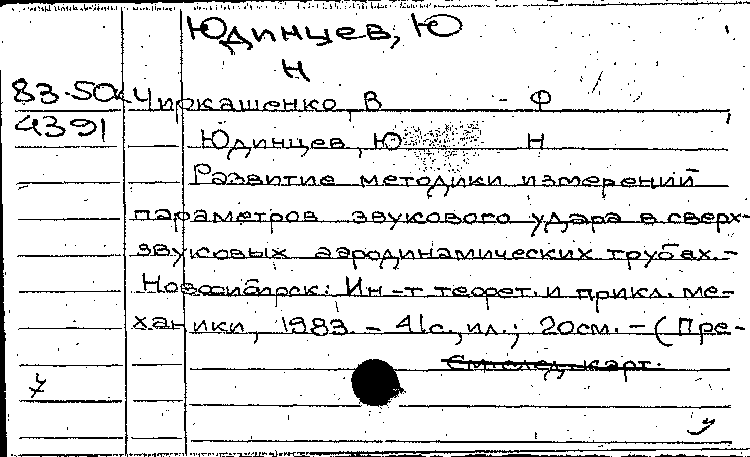 Юдинцев, Ю
Н
83-50
4391
Чиркашенко, В Ф
Юдинцев, Ю Н
Развитие методики измерений
параметров звукового удара в сверх-
звуковых аэродинамических трубах. -
Новосибирск: Ин-т теорет. и прикл. ме-
ханики, 1983. - 41с., ил.; 20см. - (Пре-
См. след. карт.